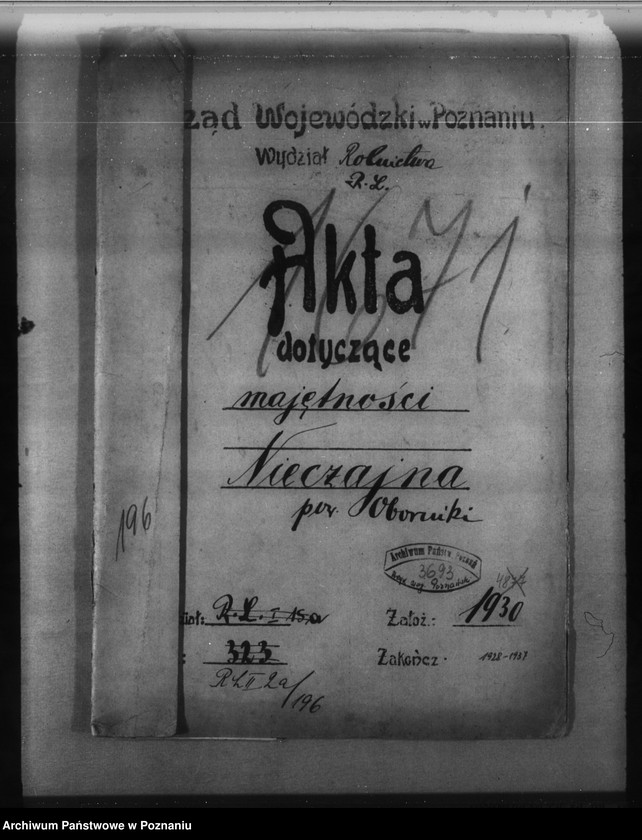 ząd Wojewódzki w Poznaniu.
Wydział Rolnictwa
R. L.
1671
Akta
dotyczące
majętności
Nieczajna
pow. Oborniki
196
Archiwum Państw. Poznań
3693
Urząd Woj. Poznański
48
iał: R. L. I 15a
Założ.: 1930
: 323
Zakończ. 1928-1937
RL II 2a/196
Archiwum Państwowe w Poznaniu